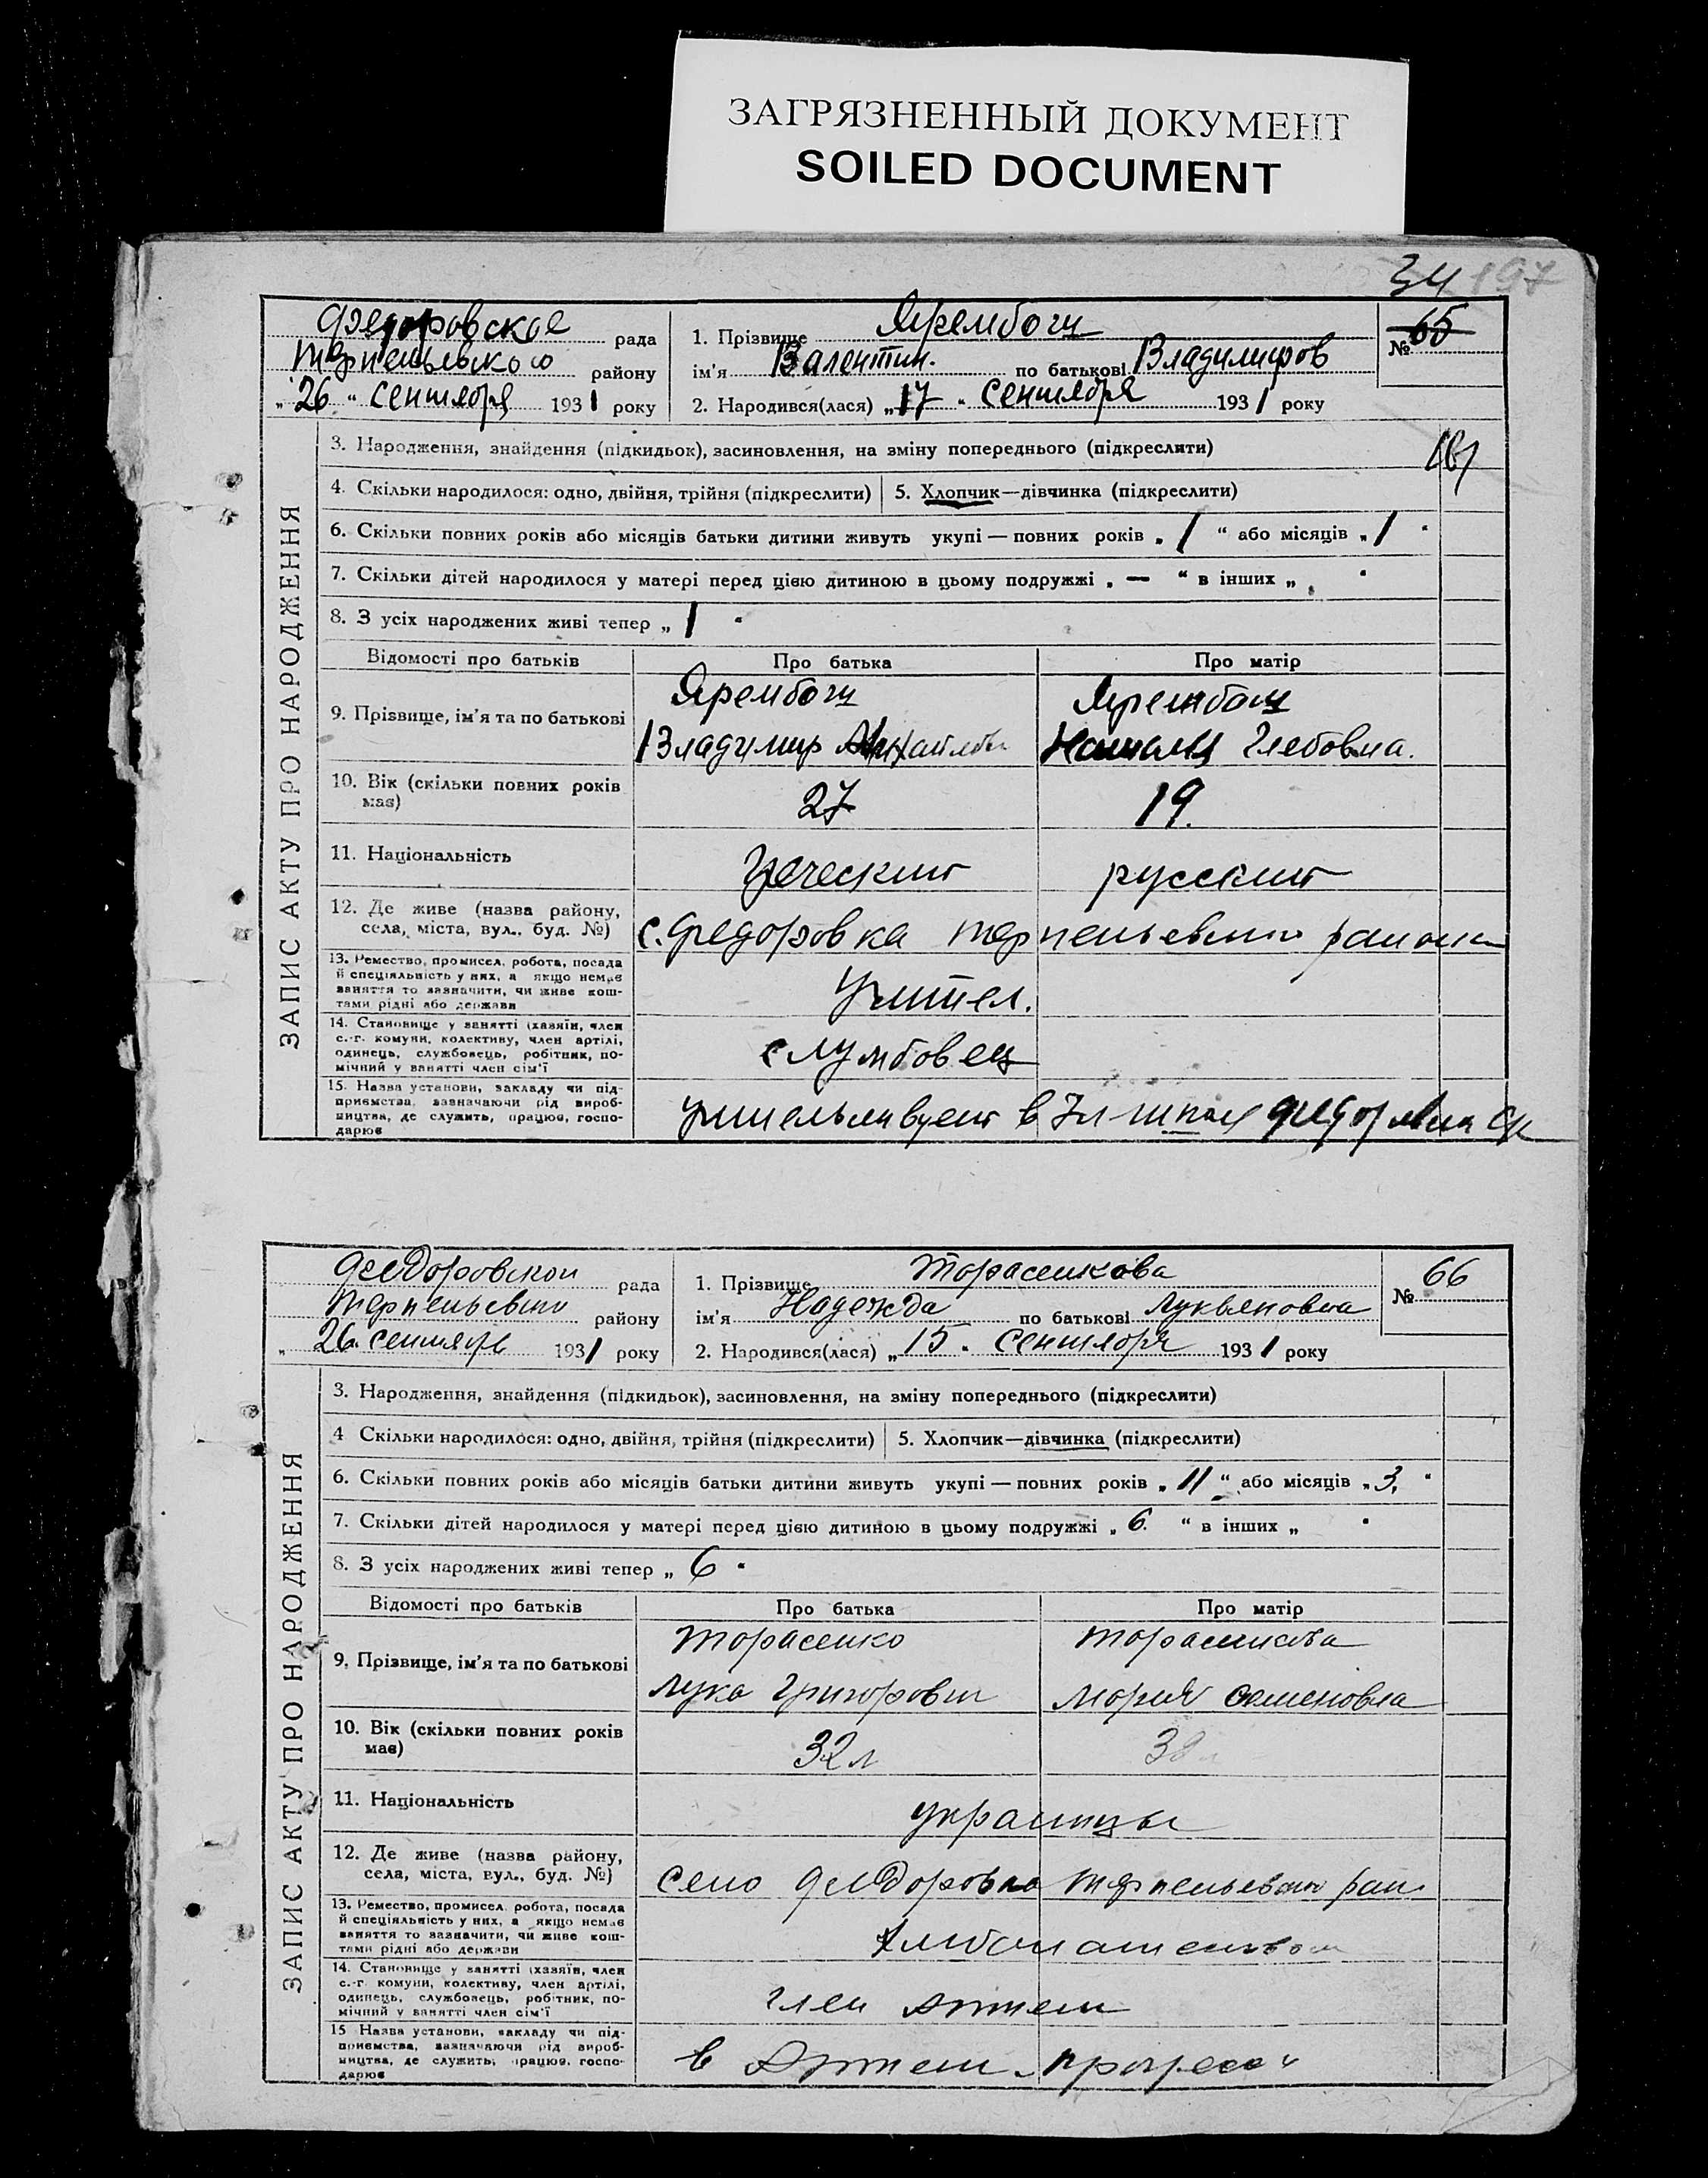 ЗАГРЯЗНЕННЫЙ ДОКУМЕНТ
SOILED DOCUMENT
34 197
ЗАПИС АКТУ ПРО НАРОДЖЕННЯ
Федоровское рада
района
„26“ сентября 1931 року
1. Прізвище
ім'я Валентин. по батькові Владимиров
2. Народився(лася) „17“ сентября 1931 року
№ 65
3. Народження, знайдення (підкидьок), засиновлення, на зміну попереднього (підкреслити)
4. Скільки народилося: одно, двійня, трійня (підкреслити) 5. Хлопчик—дівчинка (підкреслити)
6. Скільки повних років або місяців батьки дитини живуть укупі — повних років „1“ або місяців „1“
7. Скільки дітей народилося у матері перед цією дитиною в цьому подружжі „—“ в інших „ “
8. З усіх народжених живі тепер „1“
Відомості про батьків Про батька Про матір
9. Прізвище, ім'я та по батькові
Владимир Глебовна.
10. Вік (скільки повних років має) 27 19.
11. Національність русский
12. Де живе (назва району, села, міста, вул., буд. №) с. Федоровка
13. Ремество, промисел, робота, посада й спеціяльність у них, а якщо немає заняття то зазначити, чи живе коштами рідні або держави
Учител.
14. Становище у занятті (хазяїн, член с.-г. комуни, колективу, член артілі, одинець, службовець, робітник, помічний у занятті член сім'ї
службовец
15. Назва установи, закладу чи підприємства, зазначаючи рід виробництва, де служить, працює, господарює
ЗАПИС АКТУ ПРО НАРОДЖЕННЯ
Федоровской рада
району
„26. сентября 1931 року
1. Прізвище Торасенкова
ім'я Надежда по батькові Лукьяновна
2. Народився(лася) „15“ сентября 1931 року
№ 66
3. Народження, знайдення (підкидьок), засиновлення, на зміну попереднього (підкреслити)
4 Скільки народилося: одно, двійня, трійня (підкреслити) 5. Хлопчик—дівчинка (підкреслити)
6. Скільки повних років або місяців батьки дитини живуть укупі — повних років „11“ або місяців „3.“
7. Скільки дітей народилося у матері перед цією дитиною в цьому подружжі „6.“ в інших „ “
8. З усіх народжених живі тепер „6“
Відомості про батьків Про батька Про матір
9. Прізвище, ім'я та по батькові Торасенко Торасенкова
Лука Мория Семеновна
10. Вік (скільки повних років має) 32 л
11. Національність украинцы
12. Де живе (назва району, села, міста, вул., буд. №) село Федоровка
13. Ремество, промисел, робота, посада й спеціяльність у них, а якщо немає заняття то зазначити, чи живе коштами рідні або держави
14. Становище у занятті (хазяїн, член с.-г. комуни, колективу, член артілі, одинець, службовець, робітник, помічний у занятті член сім'ї
член Артели
15 Назва установи, закладу чи підприємства, зазначаючи рід виробництва, де служить, працює, господарює
в Артели „прогресс“